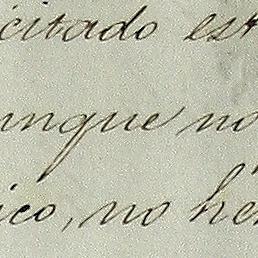 icitado est
unque no
ico, no he